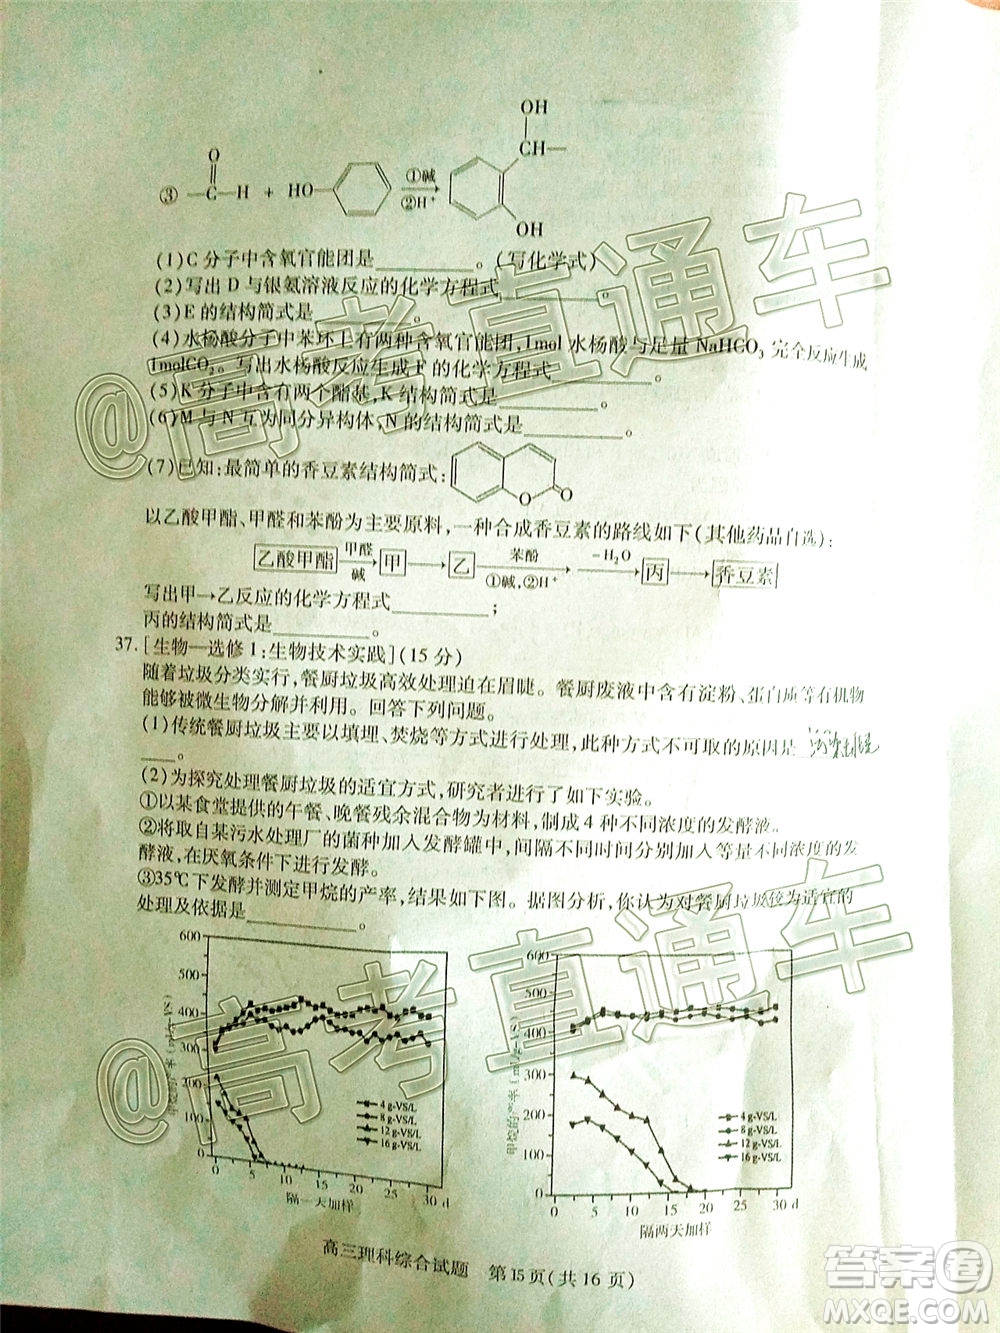 ③ —C—H + HO— ①碱 ②H⁺ OH CH— OH
O
(1)C分子中含氧官能团是________。(写化学式)
(2)写出D与银氨溶液反应的化学方程式________。
(3)E的结构简式是________。
(4)水杨酸分子中苯环上有两种含氧官能团,1mol水杨酸与足量NaHCO₃完全反应生成
1molCO₂。写出水杨酸反应生成F的化学方程式________。
(5)K分子中含有两个酯基,K结构简式是________。
(6)M与N互为同分异构体,N的结构简式是________。
(7)已知:最简单的香豆素结构简式: O O
以乙酸甲酯、甲醛和苯酚为主要原料,一种合成香豆素的路线如下(其他药品自选):
乙酸甲酯 甲醛 碱 甲 乙 苯酚 ①碱,②H⁺ －H₂O 丙 香豆素
写出甲→乙反应的化学方程式________;
丙的结构简式是________。
37.[生物—选修1:生物技术实践](15分)
随着垃圾分类实行,餐厨垃圾高效处理迫在眉睫。餐厨废液中含有淀粉、蛋白质等有机物
能够被微生物分解并利用。回答下列问题。
(1)传统餐厨垃圾主要以填埋、焚烧等方式进行处理,此种方式不可取的原因是
____。
(2)为探究处理餐厨垃圾的适宜方式,研究者进行了如下实验。
①以某食堂提供的午餐、晚餐残余混合物为材料,制成4种不同浓度的发酵液。
②将取自某污水处理厂的菌种加入发酵罐中,间隔不同时间分别加入等量不同浓度的发
酵液,在厌氧条件下进行发酵。
③35℃下发酵并测定甲烷的产率,结果如下图。据图分析,你认为对餐厨垃圾较为适宜的
处理及依据是________。
600
500
400
300
200
100
0
4 g-VS/L
8 g-VS/L
12 g-VS/L
16 g-VS/L
0 5 10 15 20 25 30 d
隔一天加样
甲烷的产率(ml/g-VS)
600
500
400
300
200
100
0
4 g-VS/L
8 g-VS/L
12 g-VS/L
16 g-VS/L
0 5 10 15 20 25 30 d
隔两天加样
高三理科综合试题 第15页(共16页)
@高考直通车
@高考直通车
答案圈
MXQE.COM